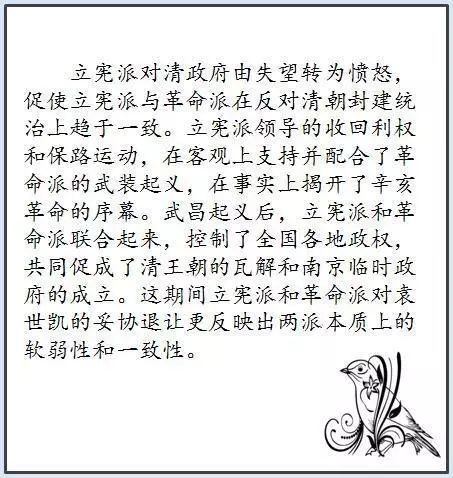 立宪派对清政府由失望转为愤怒，
促使立宪派与革命派在反对清朝封建统
治上趋于一致。立宪派领导的收回利权
和保路运动，在客观上支持并配合了革
命派的武装起义，在事实上揭开了辛亥
革命的序幕。武昌起义后，立宪派和革
命派联合起来，控制了全国各地政权，
共同促成了清王朝的瓦解和南京临时政
府的成立。这期间立宪派和革命派对袁
世凯的妥协退让更反映出两派本质上的
软弱性和一致性。